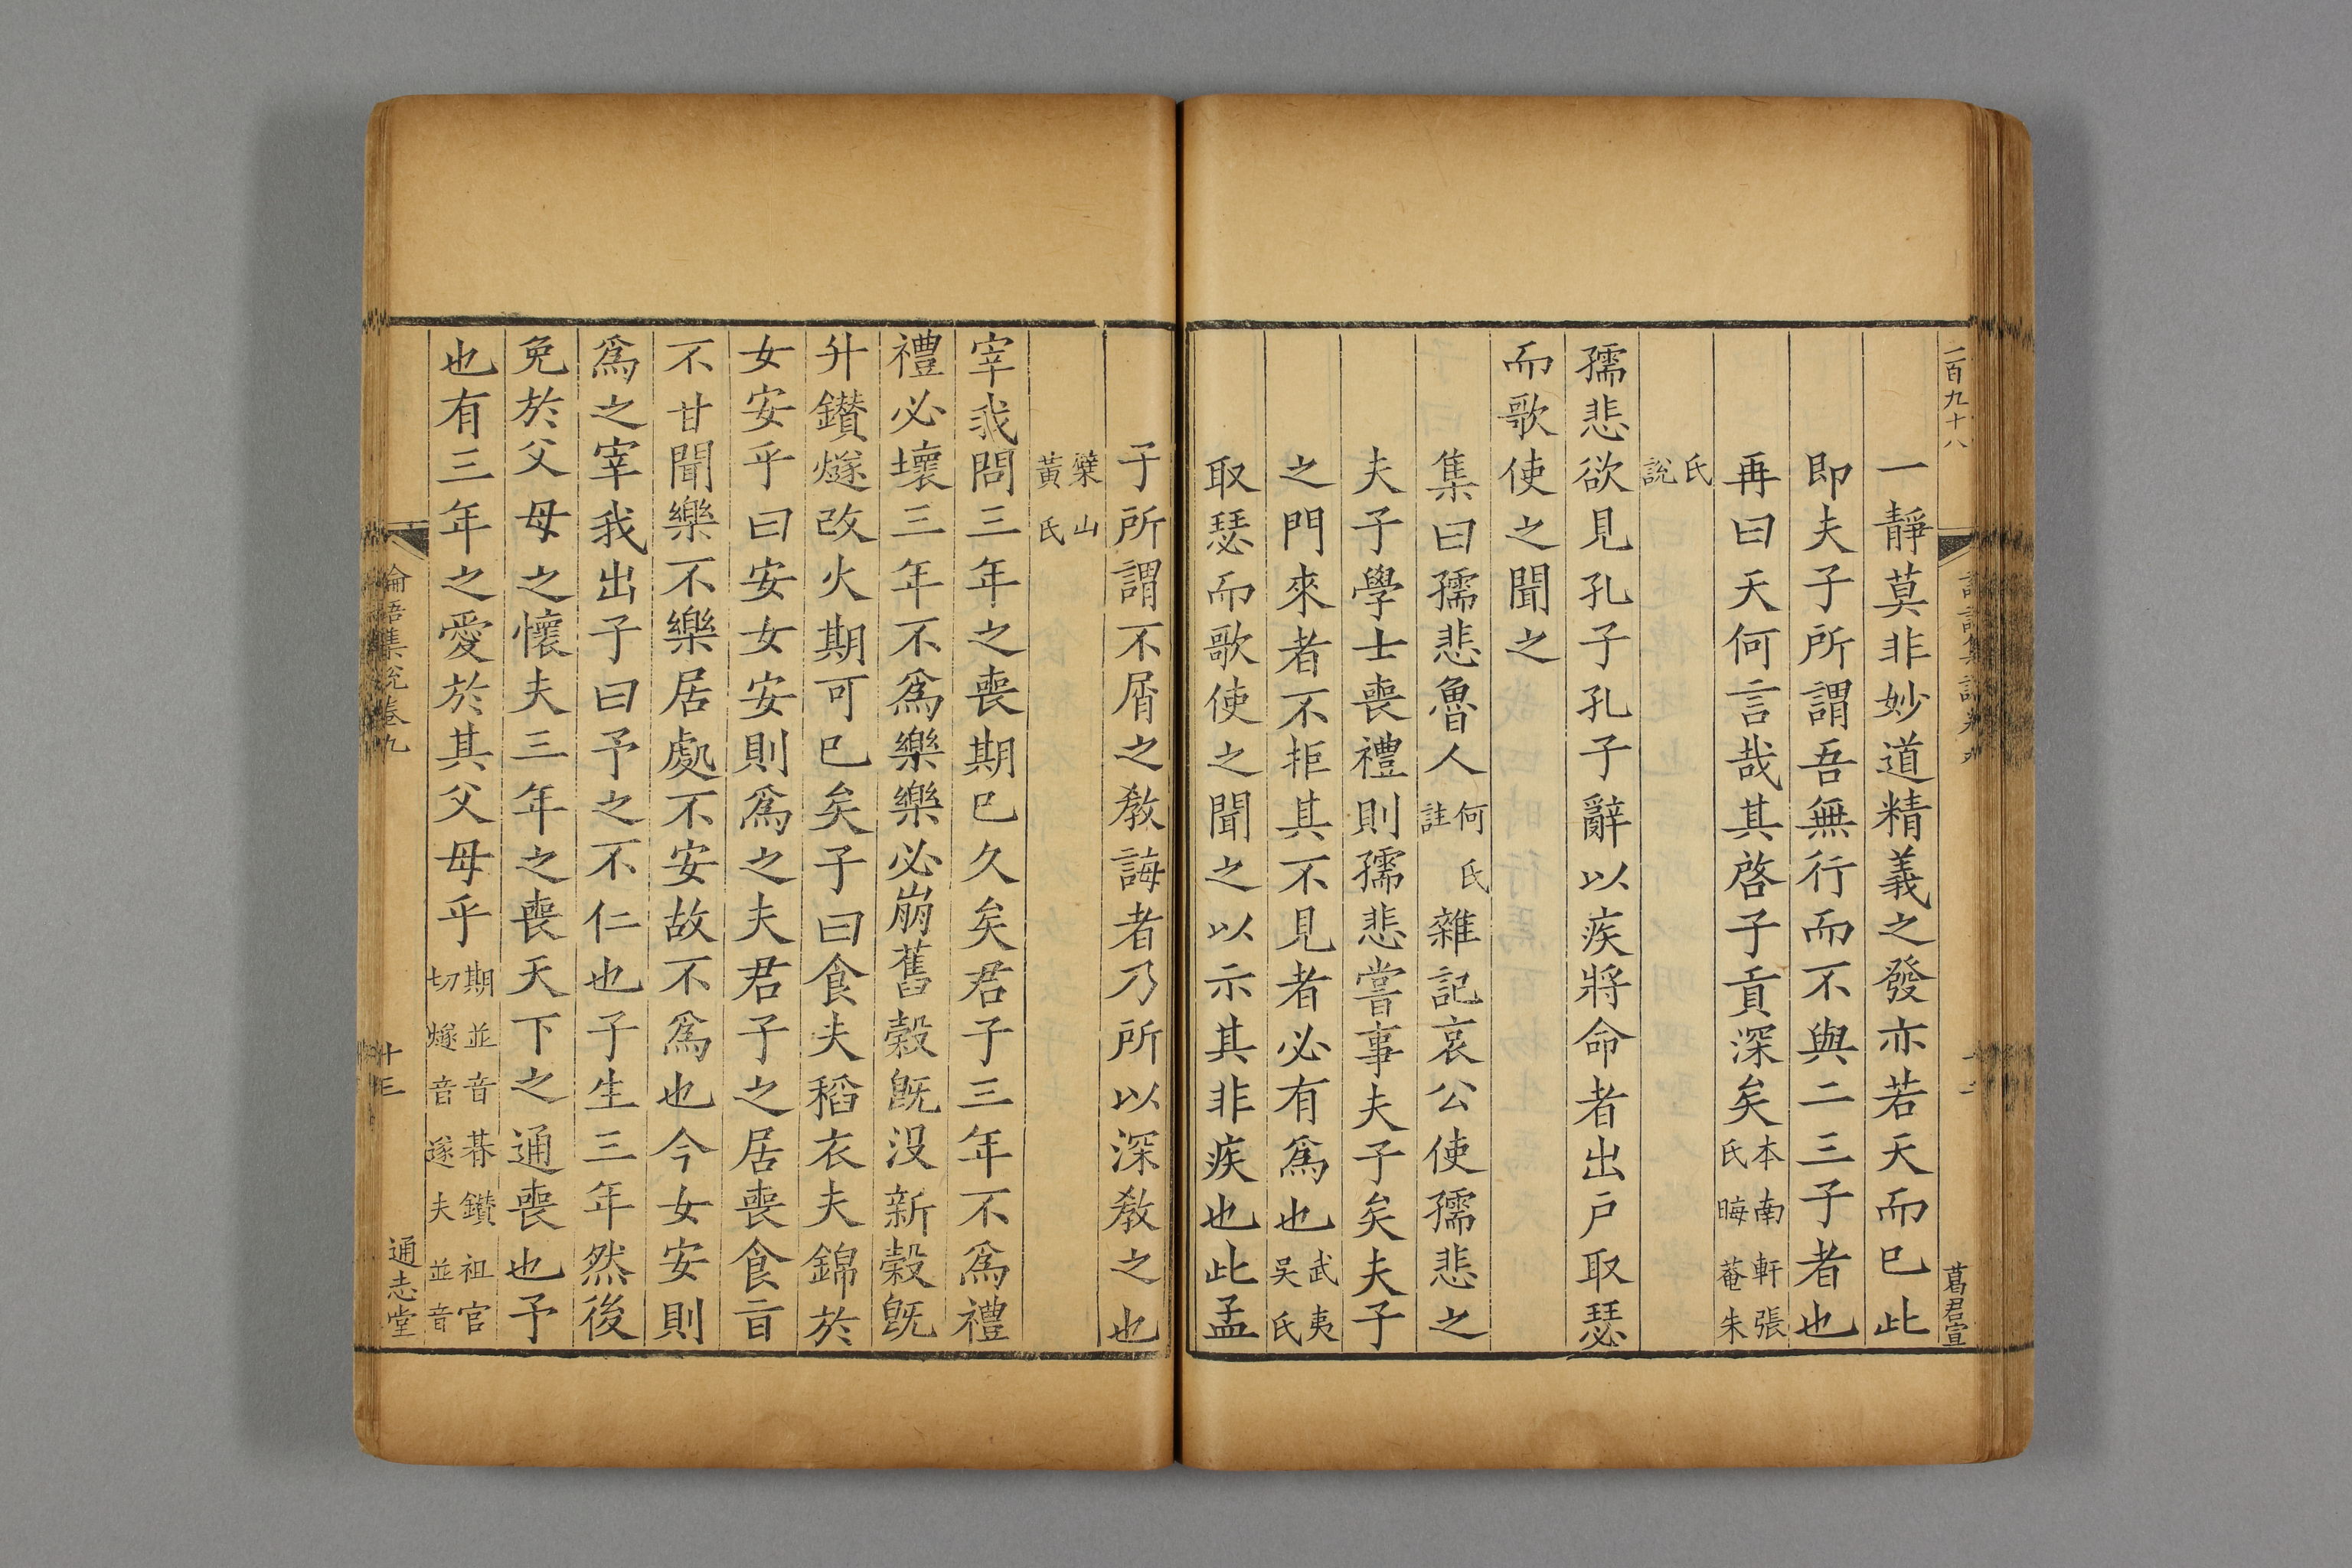 一百九十八
葛君宣
一靜莫非妙道精義之發亦若天而已此
即夫子所謂吾無行而不與二三子者也
再曰天何言哉其啓子貢深矣本南軒張氏晦菴朱
氏說
孺悲欲見孔子孔子辭以疾將命者出戶取瑟
而歌使之聞之
集曰孺悲魯人何氏註雜記哀公使孺悲之
夫子學士喪禮則孺悲嘗事夫子矣夫子
之門來者不拒其不見者必有爲也武夷吳氏
取瑟而歌使之聞之以示其非疾也此孟
子所謂不屑之敎誨者乃所以深敎之也
檗山黃氏
宰我問三年之喪期已久矣君子三年不爲禮
禮必壞三年不爲樂樂必崩舊穀旣没新穀旣
升鑚燧改火期可已矣子曰食夫稻衣夫錦於
女安乎曰安女安則爲之夫君子之居喪食旨
不甘聞樂不樂居處不安故不爲也今女安則
爲之宰我出子曰予之不仁也子生三年然後
免於父母之懷夫三年之喪天下之通喪也予
也有三年之愛於其父母乎期並音朞鑚祖官切燧音遂夫並音
論語集說卷九
十三
通志堂